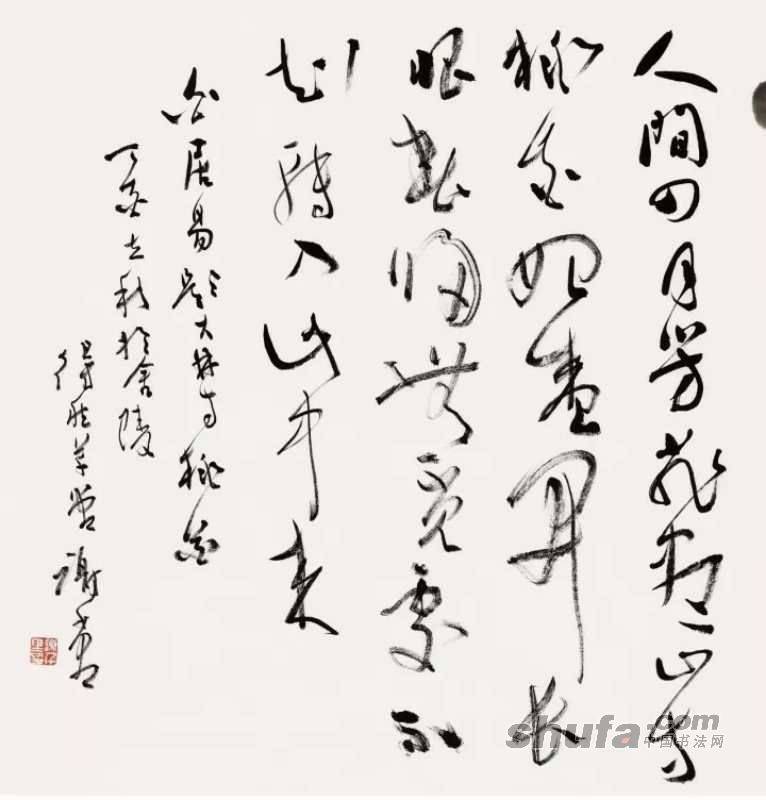 人間四月芳菲尽山寺
桃花始盛開長
恨春歸無覓處不
知轉入此中來
白居易題大林寺桃花
丁亥立秋於金陵
草堂謝
shufa.com
中国书法网